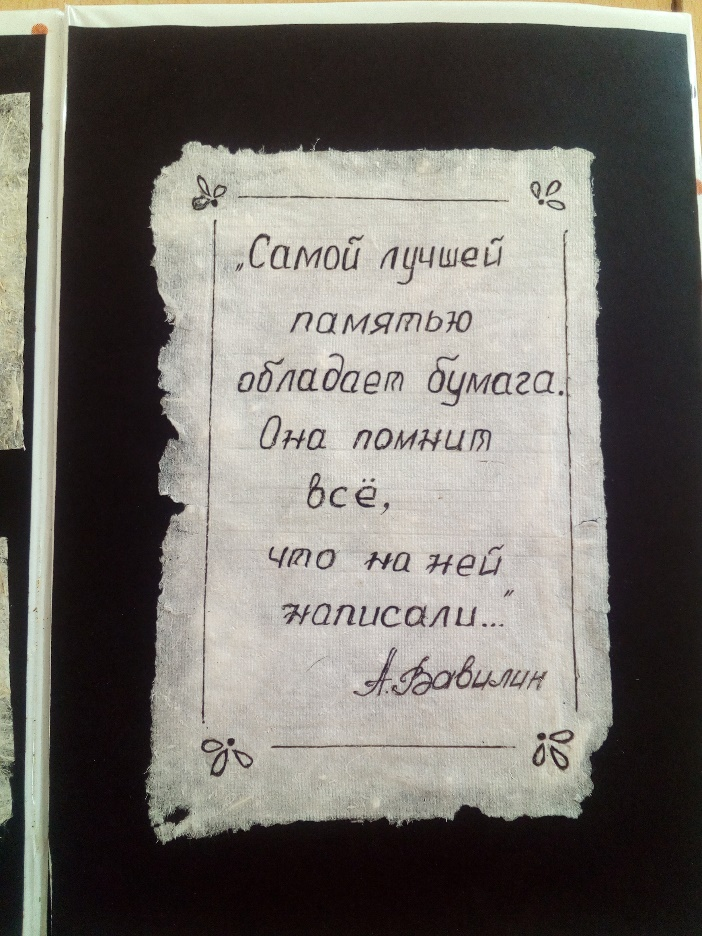 „Самой лучшей
памятью
обладает бумага.
Она помнит
всё,
что на ней
написали..."
А.Вавилин